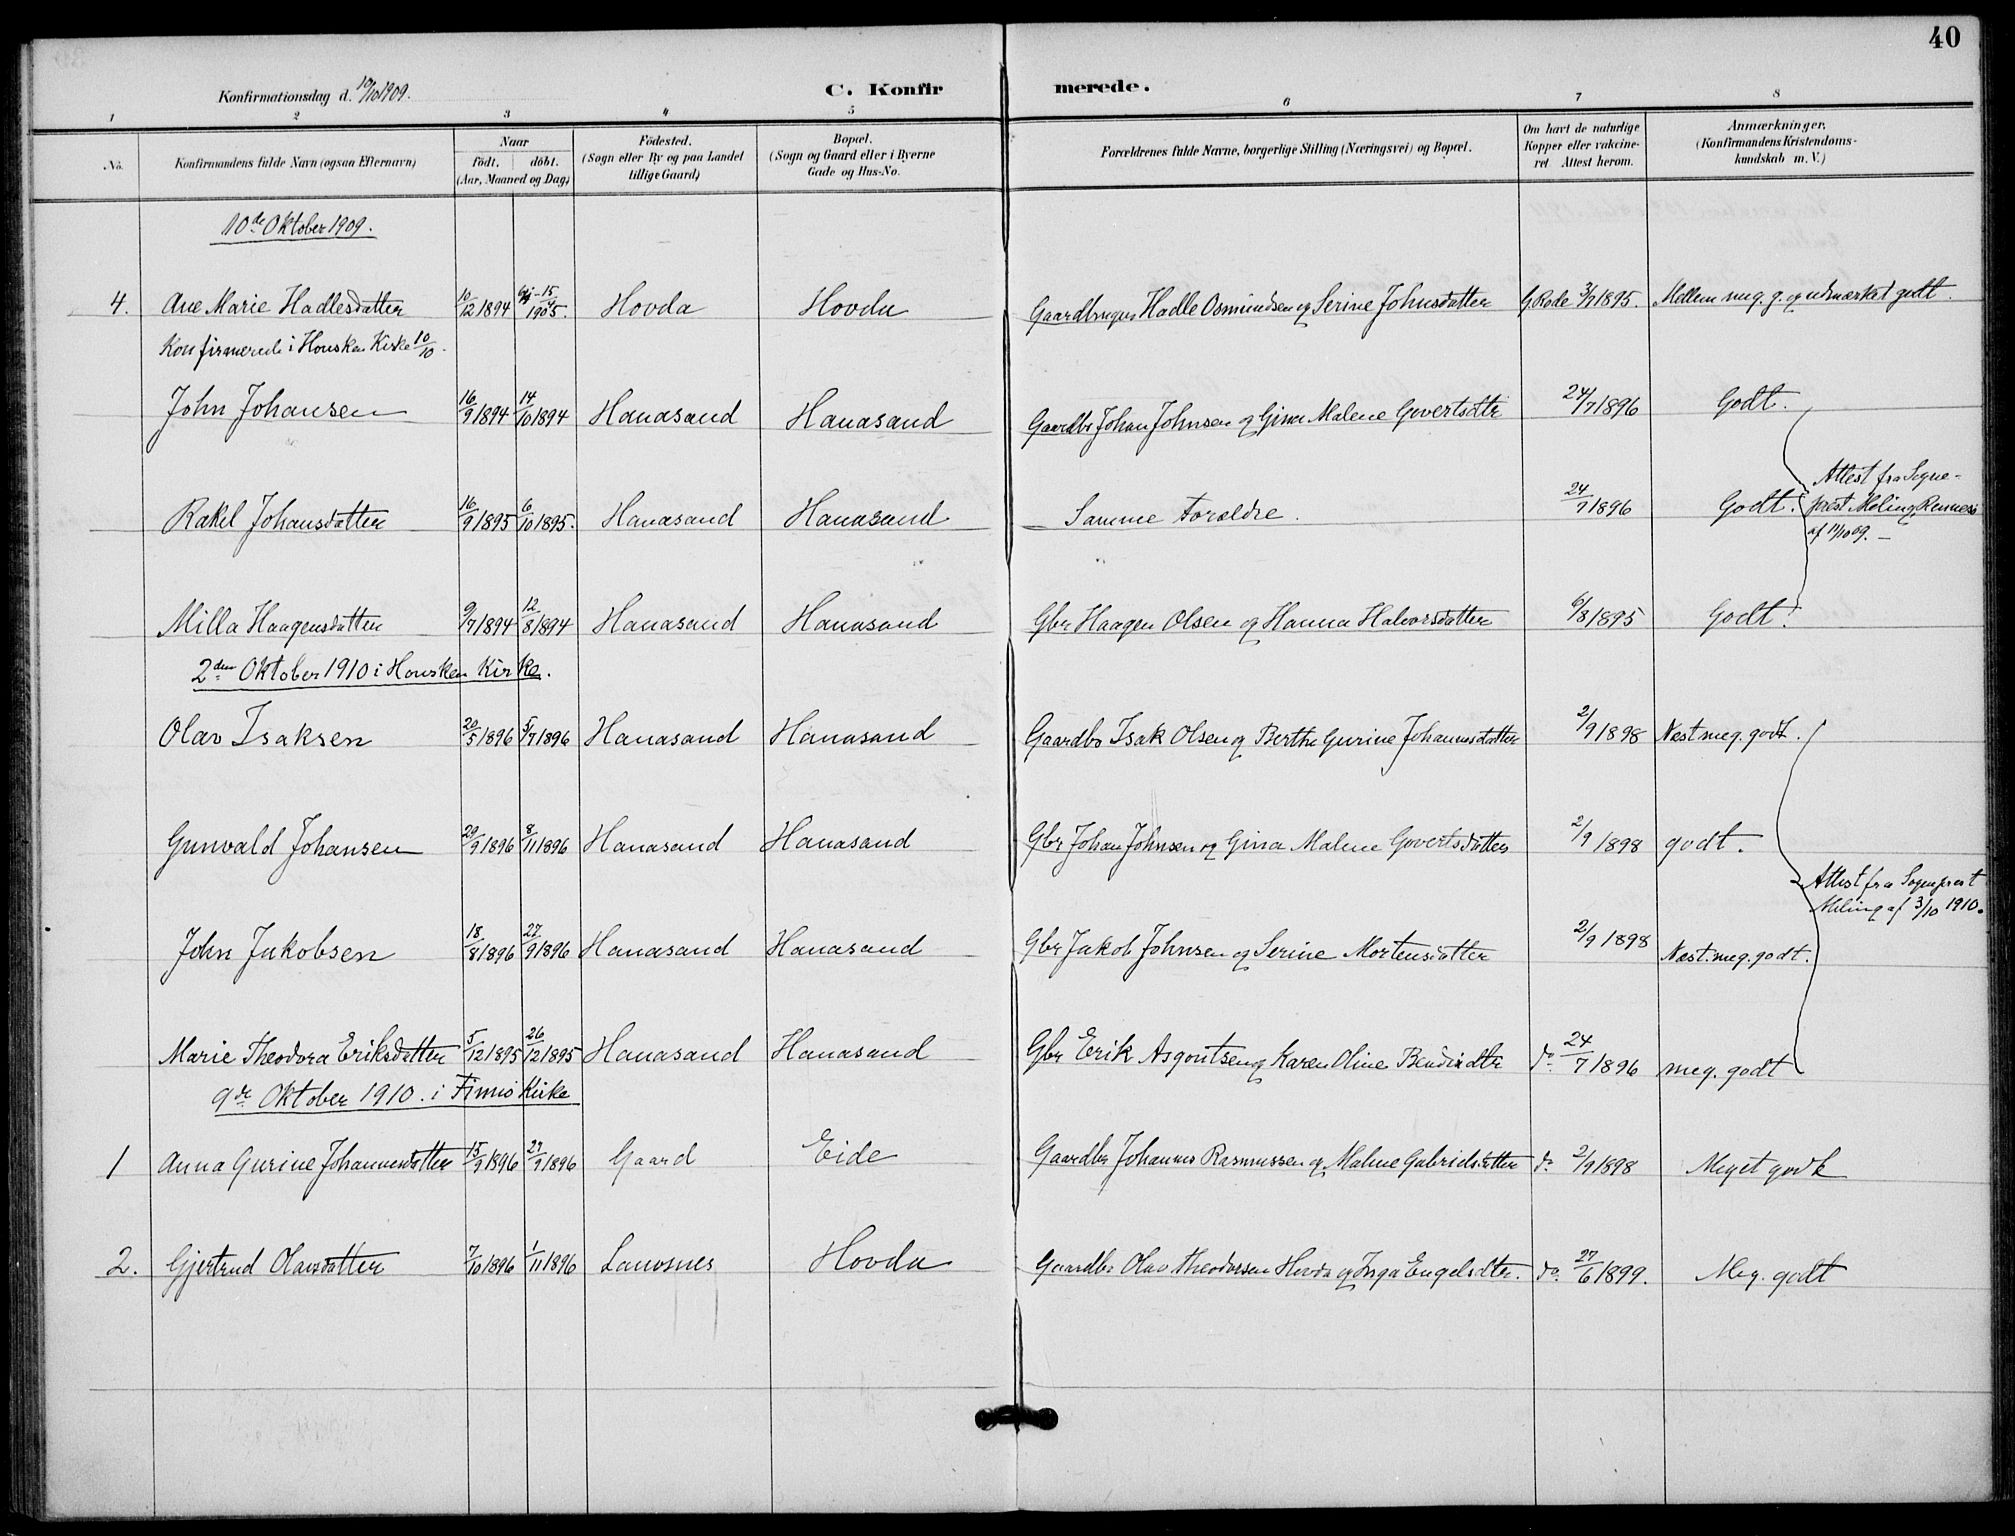 40
Konfirmationsdag d. 10/10 1909. C. Konfirmerede.
1 2 3 4 5 6 7 8
No. Konfirmandens fulde Navn (ogsaa Efternavn) Naar født. døbt. (Aar, Maaned og Dag) Födested. (Sogn eller By og paa Landet tillige Gaard) Bopæl. (Sogn og Gaard eller i Byerne Gade og Hus-No. Forældrenes fulde Navne, borgerlige Stilling (Næringsvei) og Bopæl. Om havt de naturlige Kopper eller vakcineret. Attest herom. Anmærkninger. (Konfirmandens Kristendomskundskab m. V.)
10de Oktober 1909.
4. Ane Marie Hadlesdatter 10/12 1894 15/4 1905. Hovda Hovda Gaardbruger Hadle Osmundsen og Serine Johnsdatter G Rode 3/7 1895. Mellem meg. g. og udmærket godt.
Konfirmerede i Hausken Kirke 10/10.
John Johansen 16/9 1894 14/10 1894 Hanasand Hanasand Gaardbr Johan Johnsen og Gina Malene Govertsdtr 24/7 1896 Godt.
Rakel Johansdatter 16/9 1895 6/10 1895. Hanasand Hanasand Samme Forældre. 24/7 1896 Godt.
Attest fra Sogne-
prest Meling, Rennesø
af 11/10 09. —
Milla Haagensdatter 9/7 1894 12/8 1894 Hanasand Hanasand Gbr Haagen Olsen og Hanna Halvorsdatter 6/8 1895 Godt.
2den Oktober 1910 i Hausken Kirke.
Olav Isaksen 20/5 1896 5/7 1896 Hanasand Hanasand Gaardbr Isak Olsen og Berthe Gurine Johannesdatter 2/9 1898 Næst meg. godt.
Gunvald Johansen 29/9 1896 8/11 1896 Hanasand Hanasand Gbr Johan Johnsen og Gina Malene Govertsdatter 2/9 1898 godt.
Attest fra Sogneprest
Meling af 3/10 1910.
John Jakobsen 18/8 1896 27/9 1896 Hanasand Hanasand Gbr Jakob Johnsen og Serine Mortensdatter 2/9 1898 Næst meg. godt.
Marie Theodora Eriksdatter 5/12 1895 26/12 1895 Hanasand Hanasand Gbr Erik Asgoutsen og Karen Oline do. 24/7 1896 meg. godt
9de Oktober 1910. i Finnø Kirke
1 Anna Gurine Johannesdatter 15/9 1896 27/9 1896 Gaard Eide Gaardbr Johannes Rasmussen og Malene Gabrielsdatter do 2/9 1898 Meget godt
2. Gjertrud Olavsdatter 7/10 1896 1/11 1896 Lauvsnes Hovda Gaardbr Olav Theodorsen Hovda og Inga Engelsdtr. do. 27/6 1899. Meg. godt